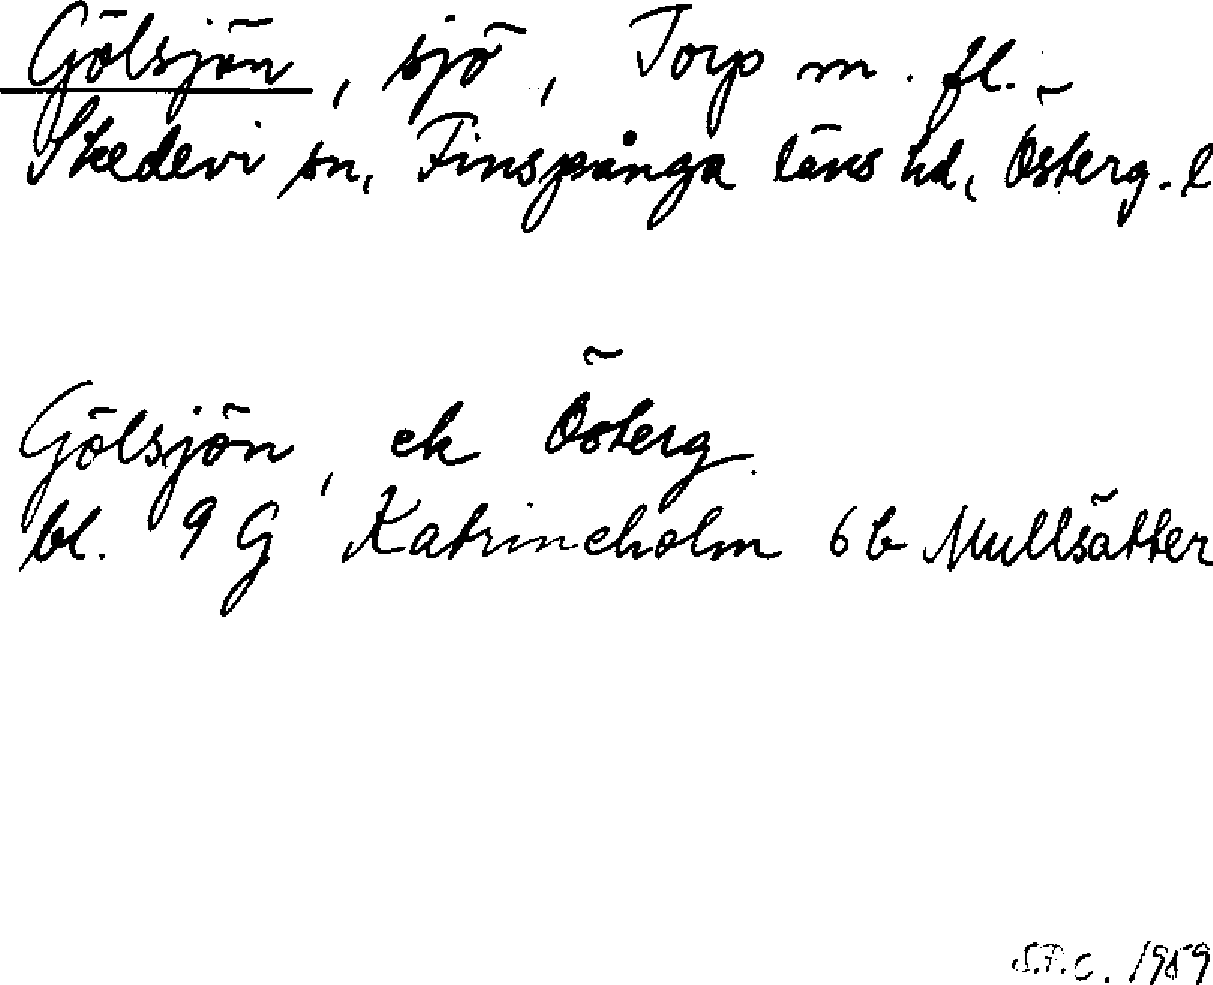 Gölsjön, sjö, Torp m. fl.
Skedevi sn, Finspånga läns hd, Österg. l
Gölsjön, ek Österg.
bl. 9 G Katrineholm 6b Mullsätter
S.P.C. 1959